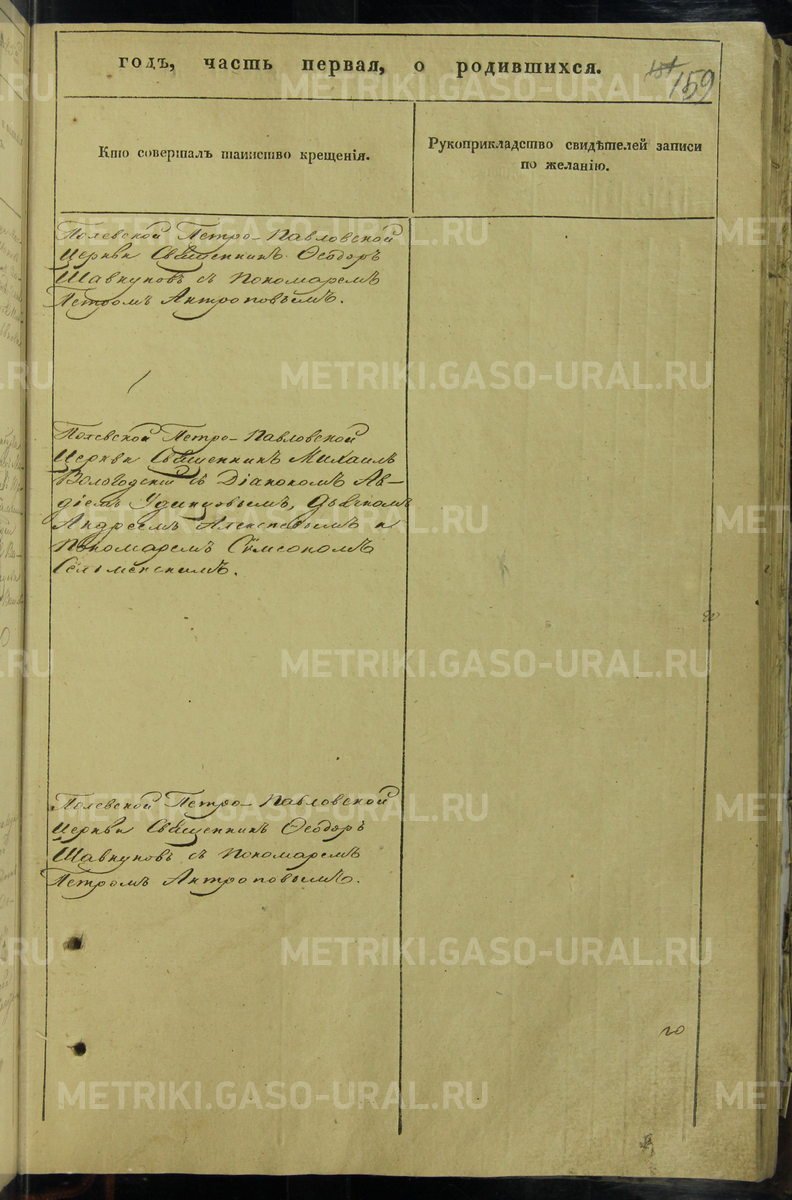 годъ, часть первая, о родившихся.
159
Кто совершалъ таинство крещенія.
Рукоприкладство свидѣтелей записи
по желанію.
Полевской Петро-Павловской
Церкви Священникъ Ѳеодоръ
Шавкуновъ съ Пономаремъ
Петромъ Антроповымъ.
Полевской Петро-Павловской
Церкви Священникъ Михаилъ
Вологодскій съ Діакономъ Ав-
діемъ Удинцовымъ, Дьячкомъ
Андреемъ Алексѣевымъ и
Пономаремъ Сѵмеономъ
Полевской Петро-Павловской
Церкви Священникъ Ѳеодоръ
Шавкуновъ съ Пономаремъ
Петромъ Антроповымъ.
METRIKI.GASO-URAL.RU